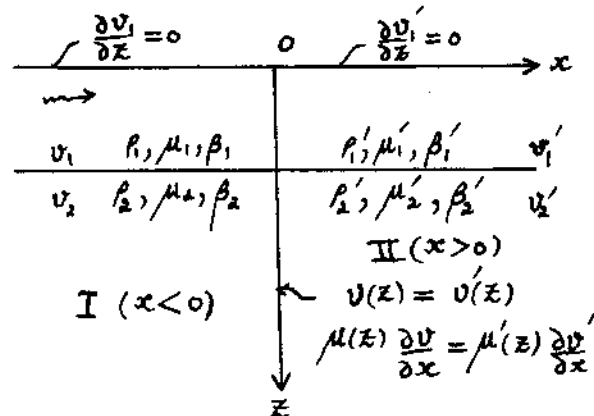 ∂v₁/∂z = 0 O ∂v₁′/∂z = 0
x
v₁ ρ₁, μ₁, β₁ ρ₁′, μ₁′, β₁′ v₁′
v₂ ρ₂, μ₂, β₂ ρ₂′, μ₂′, β₂′ v₂′
II (x>0)
I (x<0) v(z) = v′(z)
μ(z) ∂v/∂x = μ′(z) ∂v′/∂x
z